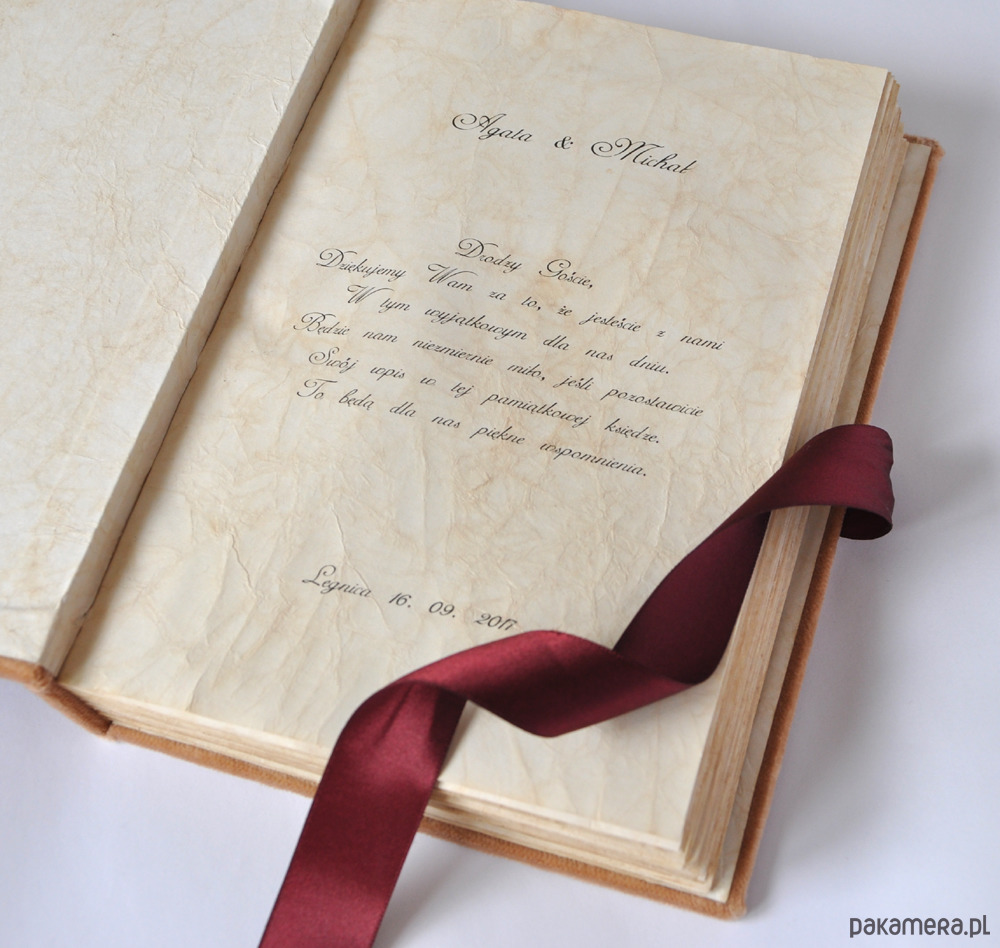 Agata & Michał
Drodzy Goście,
Dziękujemy Wam za to, że jesteście z nami
W tym wyjątkowym dla nas dniu.
Będzie nam niezmiernie miło, jeśli pozostawicie
Swój wpis w tej pamiątkowej księdze.
To będą dla nas piękne wspomnienia.
Legnica 16. 09. 2017
pakamera.pl